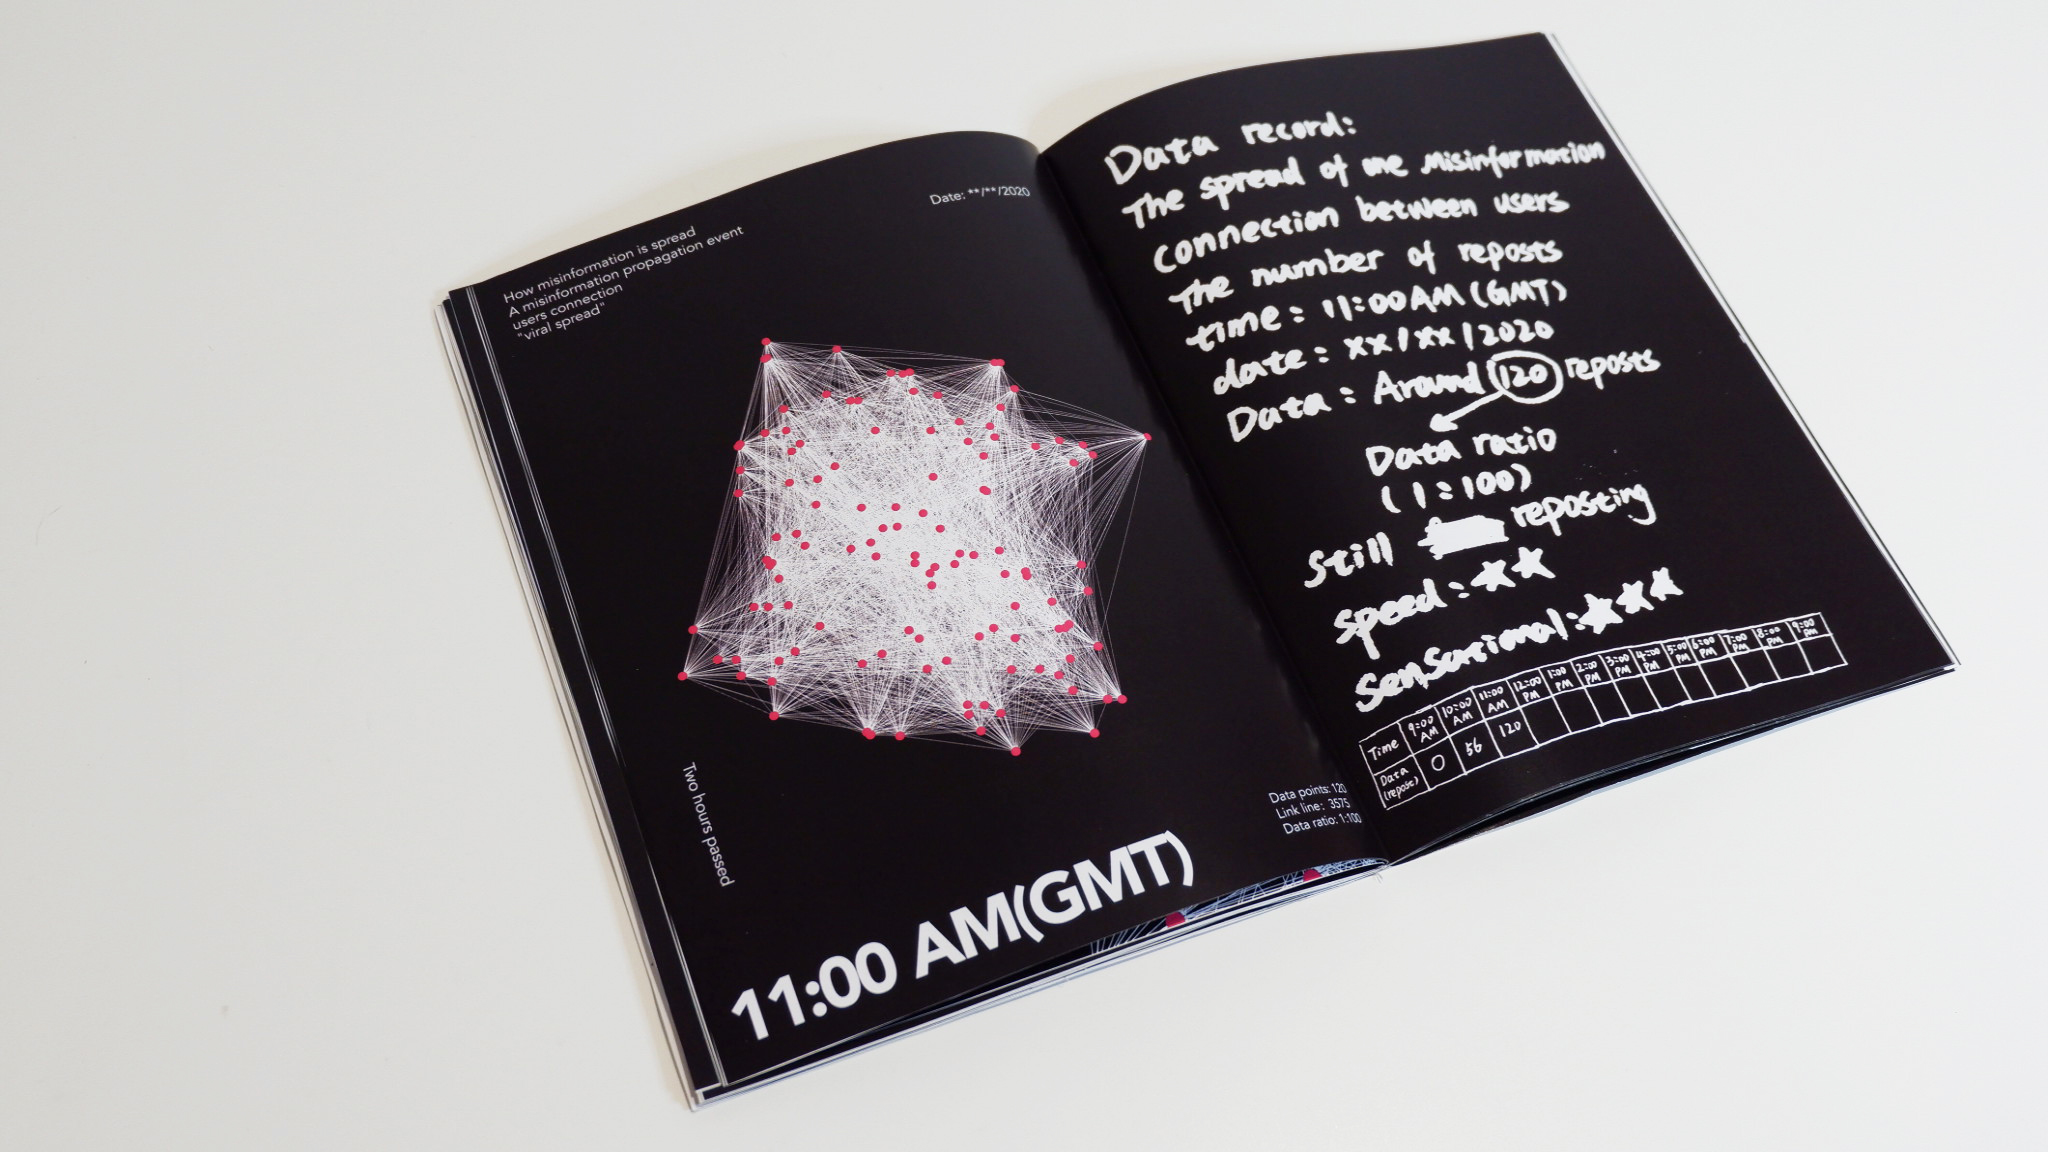 How misinformation is spread
A misinformation propagation event
users connection
"viral spread"
Date: **/**/2020
Two hours passed
Data points: 120
Link line: 3575
Data ratio: 1:100
11:00 AM(GMT)
Data record:
The spread of me Misinformation
connection between users
The number of reposts
time: 11:00AM (GMT)
date: xx/xx/2020
Data: Around 120 reposts
Data ratio
(1:100)
Still reposting
speed: ★★
Sensational: ★★★
Time 9:00 AM 10:00 AM 11:00 AM 12:00 PM 1:00 PM 2:00 PM 3:00 PM 4:00 PM 5:00 PM 6:00 PM 7:00 PM 8:00 PM 9:00 PM
Data (repost) 0 56 120